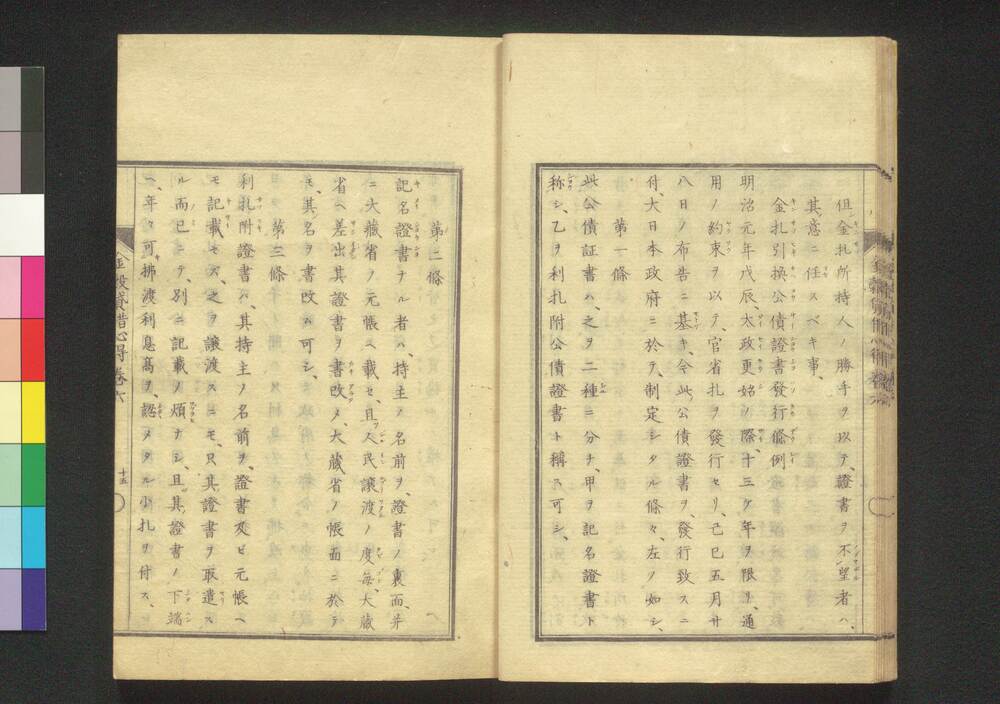 但金札所持人ノ勝手ヲ以テ、證書ヲ不望者ハ、
其意ニ任スベキ事、
金札引換公債證書發行條例
明治元年戊辰太政更始ノ際、十三ケ年ヲ限リ、通
用ノ約束ヲ以テ、官省札ヲ發行セリ、己巳五月廿
八日ノ布告ニ基キ、令此公債證書ヲ、發行致スニ
付、大日本政府ニ於テ、制定シタル條々、左ノ如シ、
第一條
此公債証書ハ、之ヲ二種ニ分チ、甲ヲ記名證書ト
称シ、乙ヲ利札附公債證書ト稱ス可シ、
第二條
記名證書ナル者ハ、持主ノ名前ヲ、證書ノ裏面、并
ニ大藏省ノ元帳ヘ載セ、且人民譲渡ノ度毎、大藏
省ヘ差出其證書ヲ書改メ、大藏省ノ帳面ニ於テ
モ、其名ヲ書改ム可シ、
第三條
利札附證書ハ、其持主ノ名前ヲ、證書及ビ元帳ヘ
モ記載モズ、之ヲ譲渡スニモ、只其證書ヲ取遣ス
ル而已ニテ、別ニ記載ノ煩ナシ、且其證書ノ下端
ヘ、年々可拂渡利息高ヲ、認メタル小札ヲ付ス、
貸借心得 巻六
十五